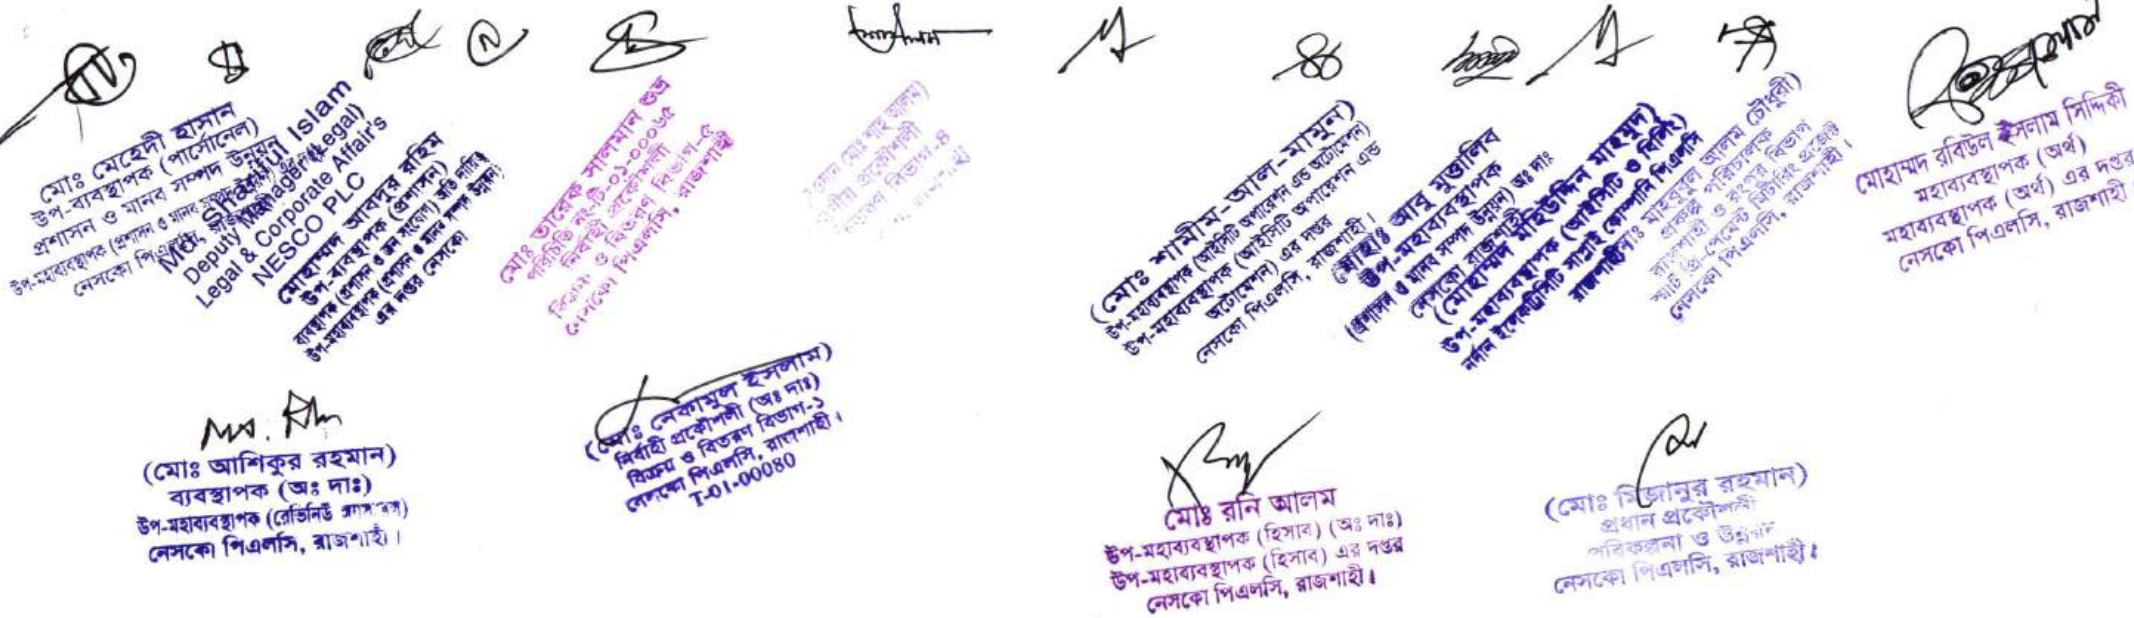 মোঃ মেহেদী হাসান
উপ-ব্যবস্থাপক (পার্সোনেল)
প্রশাসন ও মানব সম্পদ উন্নয়ন
উপ-মহাব্যবস্থাপক (প্রশাসন ও মানব সম্পদ
নেসকো পিএলসি,
Md. Shariful Islam
Deputy Manager (Legal)
Legal & Corporate Affair's
NESCO PLC
মোহাম্মদ আবদুর রহিম
উপ-ব্যবস্থাপক (প্রশাসন)
ব্যবস্থাপক (প্রশাসন ও জন সংযোগ) অতি দায়িত্ব
উপ-মহাব্যবস্থাপক (প্রশাসন ও মানব সম্পদ উন্নয়ন)
এর দপ্তর নেসকো
মোঃ তারেক সালমান শুভ্র
পরিচিতি নং-টি-০১-০০০৬৫
নির্বাহী প্রকৌশলী
বিক্রয় ও বিতরণ বিভাগ-৫
নেসকো পিএলসি, রাজশাহী
মোঃ শাহ আলম)
প্রকৌশলী
বিভাগ-৪
(মোঃ শামীম-আল-মামুন)
উপ-মহাব্যবস্থাপক (আইসিটি অপারেশন এন্ড অটোমেশন)
উপ-মহাব্যবস্থাপক (আইসিটি অপারেশন এন্ড
অটোমেশন) এর দপ্তর
নেসকো পিএলসি, রাজশাহী।
মোহাঃ আবু মুত্তালিব
উপ-মহাব্যবস্থাপক
(প্রশাসন ও মানব সম্পদ উন্নয়ন) অঃ দাঃ
নেসকো রাজশাহী
(মোহাম্মদ মহিউদ্দিন মাহমুদ)
উপ-মহাব্যবস্থাপক (আইসিটি ও বিলিং)
নর্দান ইলেকট্রিসিটি সাপ্লাই কোম্পানি পিএলসি
রাজশাহী
মাহবুবুল আলম চৌধুরী)
প্রকল্প পরিচালক
রাজশাহী ও রংপুর বিভাগ
স্মার্ট প্রি-পেমেন্ট মিটারিং প্রজেক্ট
নেসকো পিএলসি, রাজশাহী।
মোহাম্মদ রবিউল ইসলাম সিদ্দিকী
মহাব্যবস্থাপক (অর্থ)
মহাব্যবস্থাপক (অর্থ) এর দপ্তর
নেসকো পিএলসি, রাজশাহী
(মোঃ আশিকুর রহমান)
ব্যবস্থাপক (অঃ দাঃ)
উপ-মহাব্যবস্থাপক (রেভিনিউ
নেসকো পিএলসি, রাজশাহী।
(মোঃ নেকামুল ইসলাম)
নির্বাহী প্রকৌশলী (অঃ দাঃ)
বিক্রয় ও বিতরণ বিভাগ-১
নেসকো পিএলসি, রাজশাহী।
T-01-00080
মোঃ রনি আলম
উপ-মহাব্যবস্থাপক (হিসাব) (অঃ দাঃ)
উপ-মহাব্যবস্থাপক (হিসাব) এর দপ্তর
নেসকো পিএলসি, রাজশাহী।
(মোঃ মিজানুর রহমান)
প্রধান প্রকৌশলী
পরিকল্পনা ও উন্নয়ন
নেসকো পিএলসি, রাজশাহী।